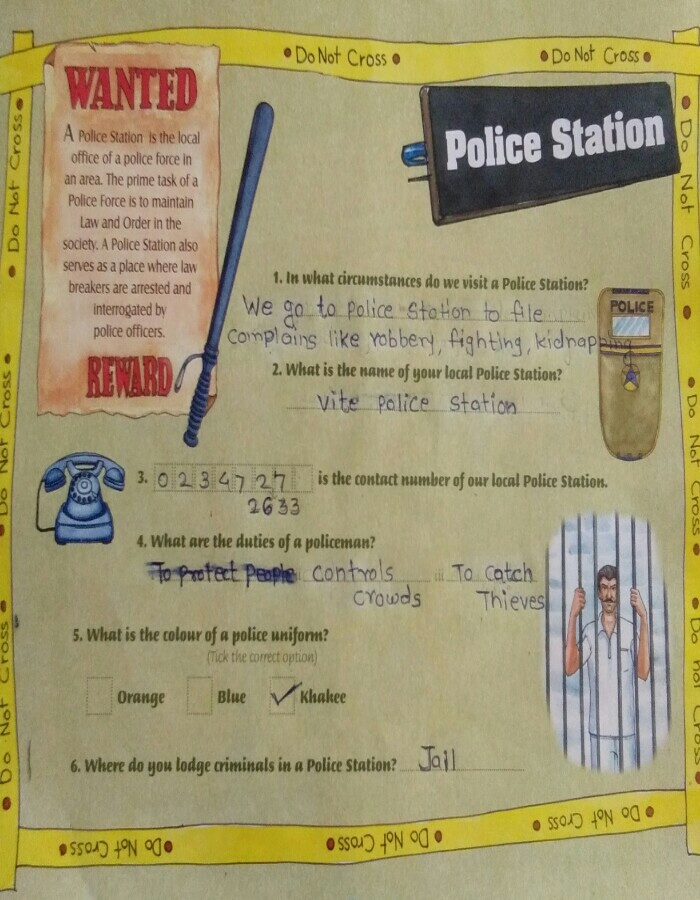 • Do Not Cross •
• Do Not Cross •
WANTED
A Police Station is the local
office of a police force in
an area. The prime task of a
Police Force is to maintain
Law and Order in the
society. A Police Station also
serves as a place where law
breakers are arrested and
interrogated by
police officers.
REWARD
Police Station
1. In what circumstances do we visit a Police Station?
We go to police station to file
complains like robbery, fighting, kidnapping
POLICE
2. What is the name of your local Police Station?
vite police station
3. 0 2 3 4 7 2 7 is the contact number of our local Police Station.
2633
4. What are the duties of a policeman?
To protect people controls To catch
crowds Thieves
5. What is the colour of a police uniform?
(Tick the correct option)
Orange Blue Khakee
6. Where do you lodge criminals in a Police Station? Jail
• Do Not Cross •
• Do Not Cross •
• Do Not Cross •
• Do Not Cross •
• Do Not Cross •
• Do Not Cross •
• Do Not Cross •
• Do Not Cross •
• Do Not Cross •